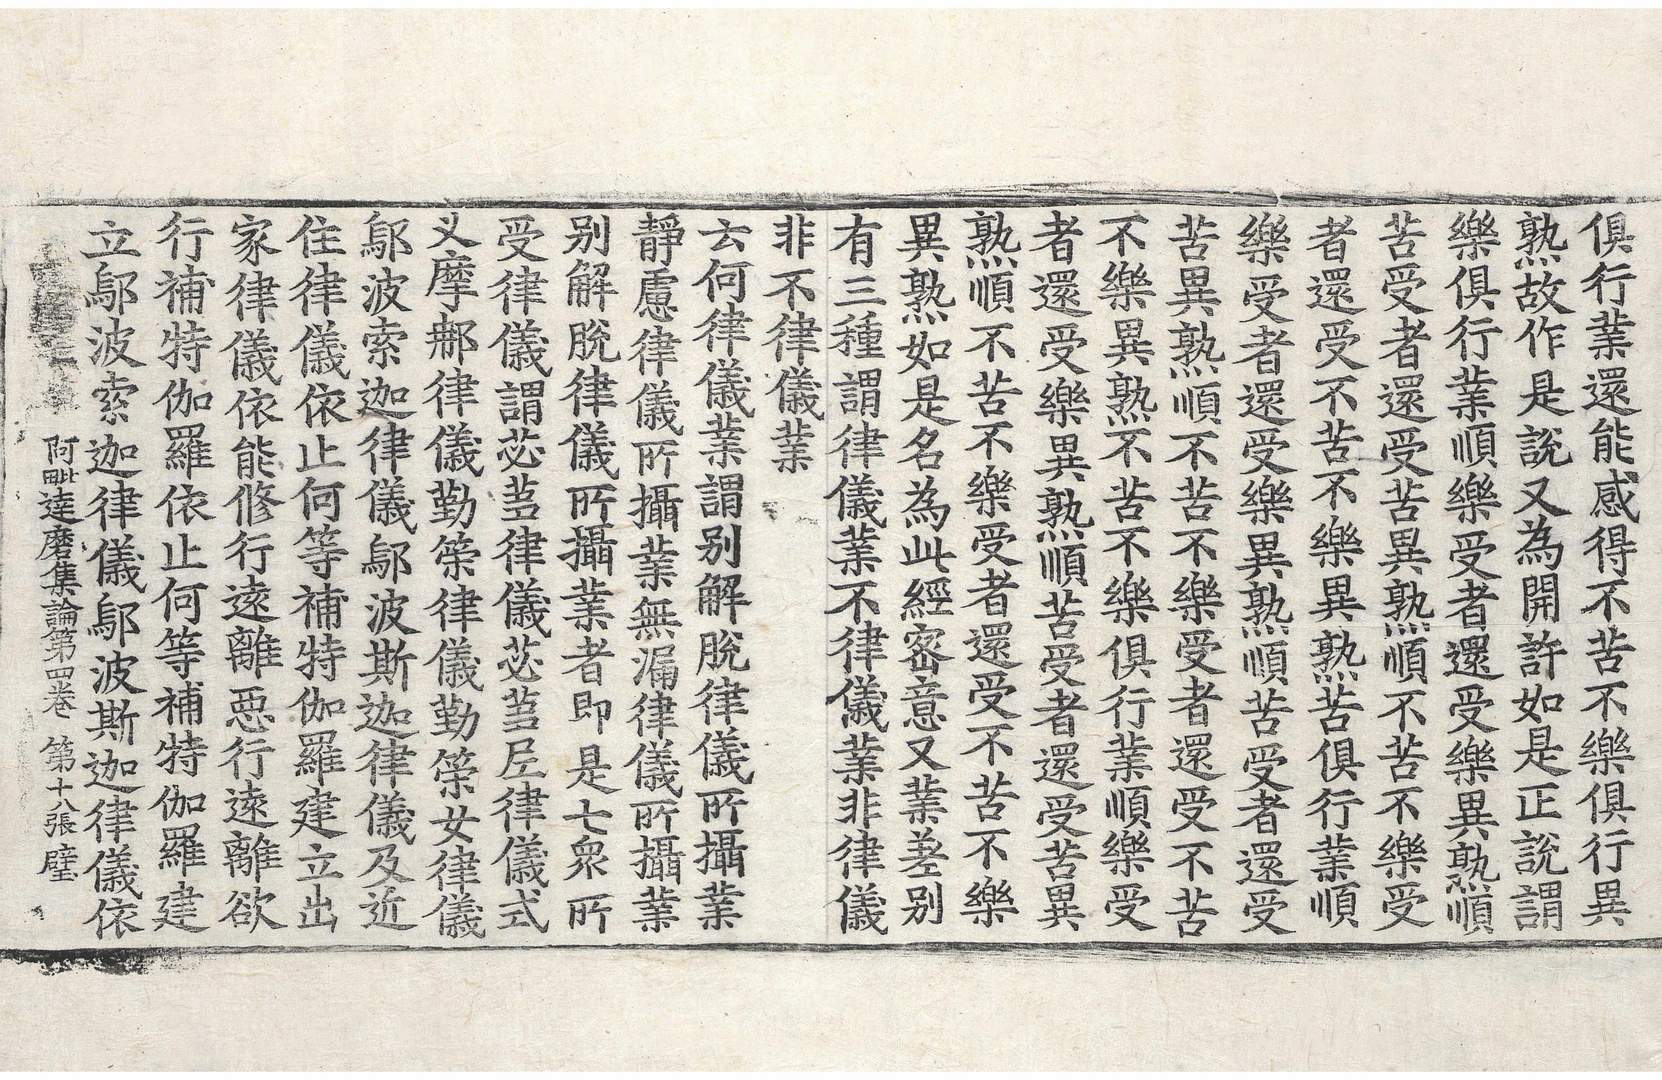 俱行業還能感得不苦不樂俱行異
熟故作是說又為開許如是正說謂
樂俱行業順樂受者還受樂異熟順
苦受者還受苦異熟順不苦不樂受
者還受不苦不樂異熟苦俱行業順
樂受者還受樂異熟順苦受者還受
苦異熟順不苦不樂受者還受不苦
不樂異熟不苦不樂俱行業順樂受
者還受樂異熟順苦受者還受苦異
熟順不苦不樂受者還受不苦不樂
異熟如是名為此經密意又業差別
有三種謂律儀業不律儀業非律儀
非不律儀業
云何律儀業謂別解脫律儀所攝業
靜慮律儀所攝業無漏律儀所攝業
別解脫律儀所攝業者即是七眾所
受律儀謂苾芻律儀苾芻尼律儀式
叉摩那律儀勤策律儀勤策女律儀
鄔波索迦律儀鄔波斯迦律儀及近
住律儀依止何等補特伽羅建立出
家律儀依能修行遠離惡行遠離欲
行補特伽羅依止何等補特伽羅建
立鄔波索迦律儀鄔波斯迦律儀依
阿毗達磨集論第四卷 第十八張 璧